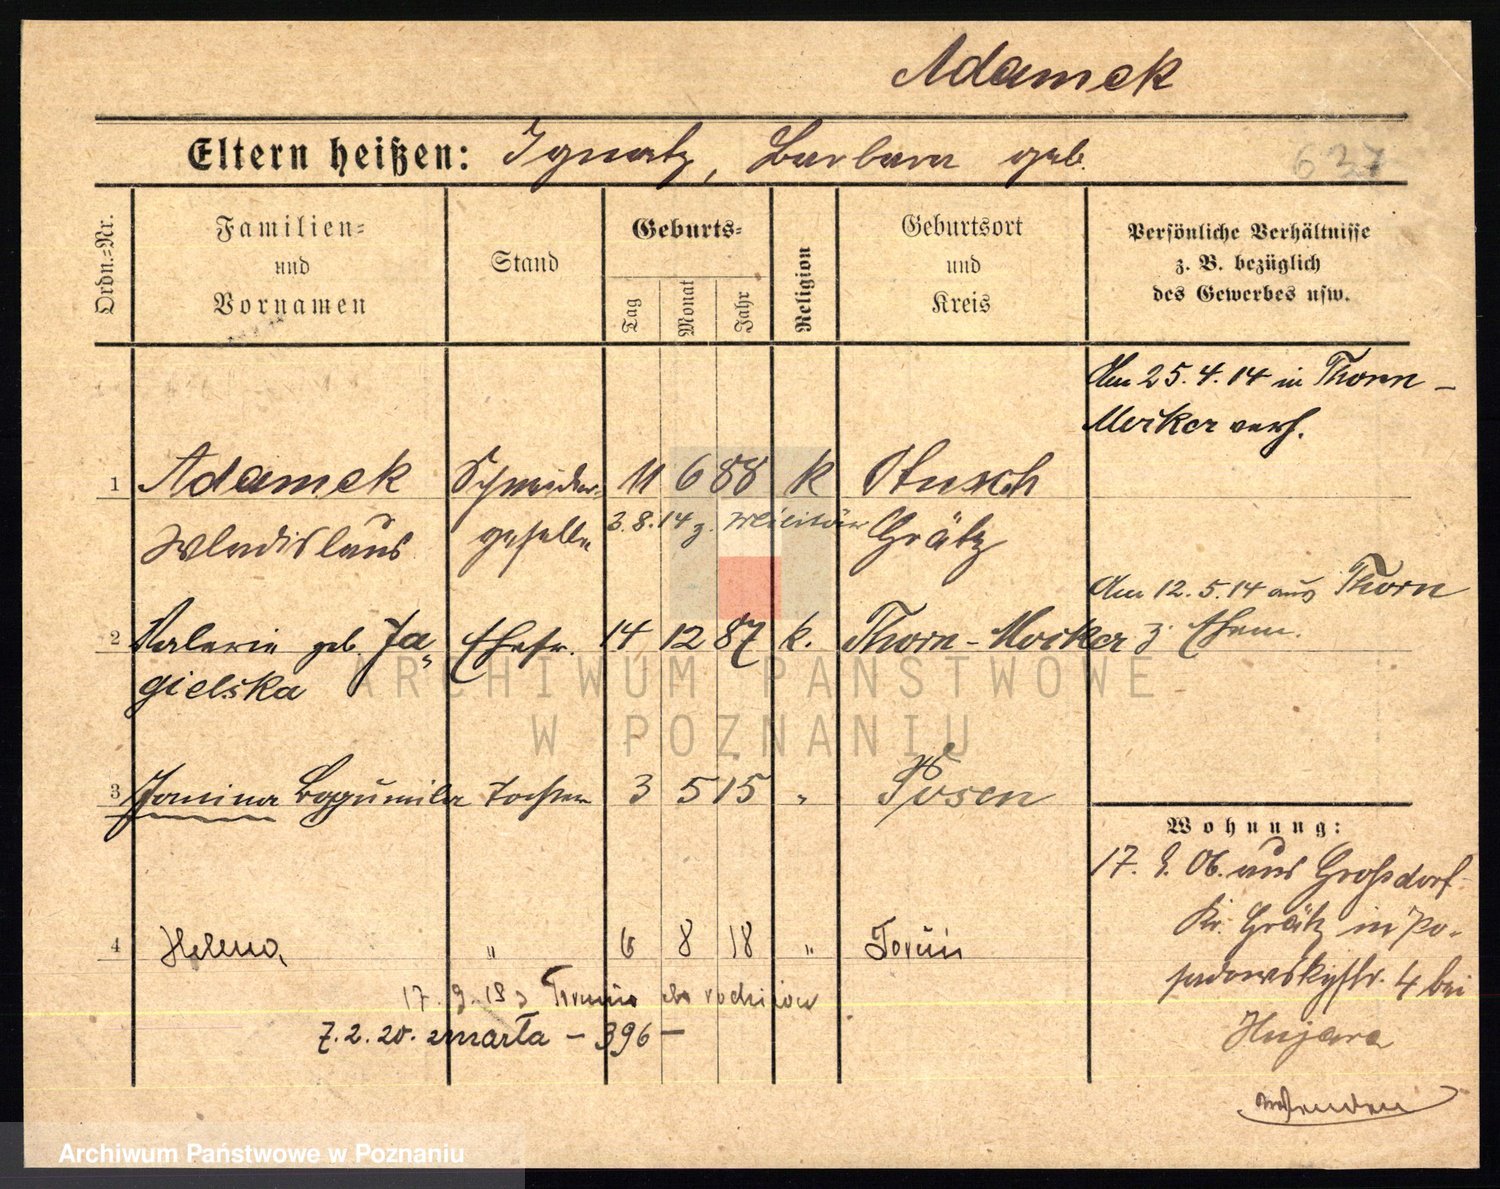 Adamek
Eltern heißen: Ignatz, Barbara geb.
637
Ordn.-Nr.
Familien-
und
Vornamen
Stand
Geburts-
Tag
Monat
Jahr
Religion
Geburtsort
und
Kreis
Persönliche Verhältnisse
z. B. bezüglich
des Gewerbes usw.
Am 25.4.14 in Thorn-
Mocker verh.
1 Adamek Schneider- 11 6 88 k Ptusch
Wladislaus geselle 3.8.14 z. Militär Grätz
Am 12.5.14 aus Thorn
2 Valerie geb. Ja- Ehefr. 14 12 87 k. Thorn-Mocker z. Ehem.
gielska
3 Janina Bogumila Tochter 3 5 15 " Posen
Wohnung:
17. 9. 06. aus Großdorf
Kr. Grätz in Po-
sadowskystr. 4 bei
Hujara
wenden
4 Helena " 6 8 18 " Toruń
17.9.18 z Torunia do rodziców
7.2.20. zmarła - 396 -
ARCHIWUM PAŃSTWOWE
W POZNANIU
Archiwum Państwowe w Poznaniu